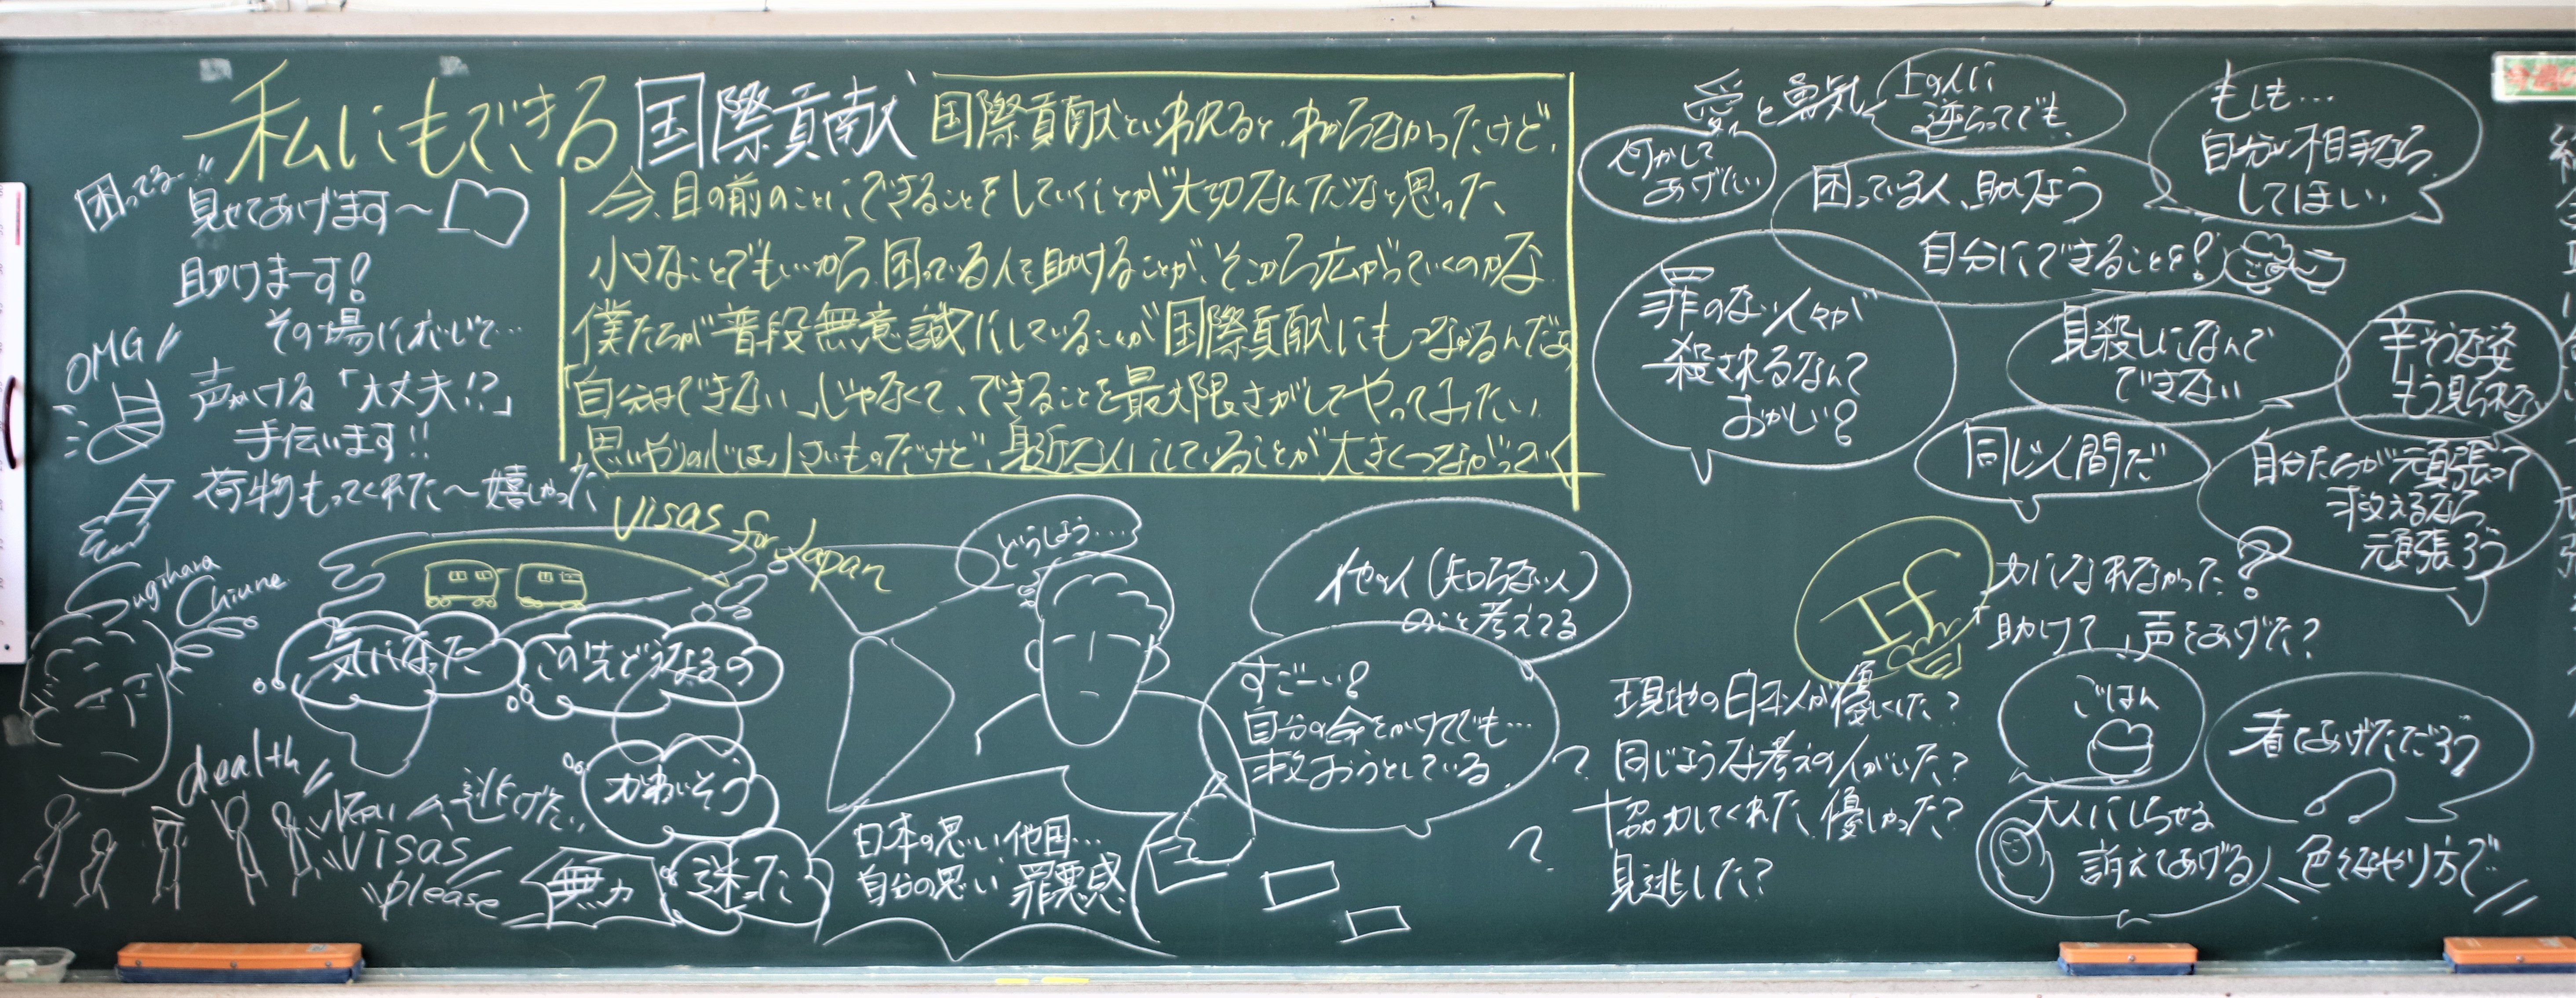 私にもできる国際貢献
国際貢献といわれると、わからなかったけど、
今、目の前のことに、できることをしていくことが大切なんだなと思った、
小さなことでもいいから、困っている人を助けることが、そこから広がっていくのかな
僕たちが普段無意識にしていることが国際貢献にもつながるんだな
「自分はできない」じゃなくて、できることを最大限さがしてやってみたい
思いやりの心は小さいものだけど、身近な人にしていることが大きくつながっていく
困ってる〜!!
見せてあげます〜
助けまーす!
その場において…
OMG!!
声かける「大丈夫!?」
手伝います!!
荷物もってくれた〜嬉しかった
Visas for Japan
Sugihara
Chiune
気になった
この先どうなるの
death
逃げたい
Visas
please
かわいそう
無力
迷った
どうしよう....
日本の思い 他国…
自分の思い 罪悪感
他の人(知らない人)
のこと考えてる
すごーい!
自分の命をかけてでも…
救おうとしている
愛と勇気
上の人に
逆らってでも
何かして
あげたい
もしも…
自分が相手なら
してほしい
困っている人、助けなう
自分にできることを!
罪のない人々が
殺されるなんて
おかしい!
見殺しになんて
できない
辛そうな姿
もう見られない
同じ人間だ
自分たちが頑張って
救えるなら
頑張ろう
If
力になれなかった?
「助けて」声をあげた?
現地の日本人が優しくした?
同じような考えの人がいた?
協力してくれた 優しかった?
見逃した?
ごはん
着せてあげただろう
大人にしらせる
訴えてあげる
色々なやり方で